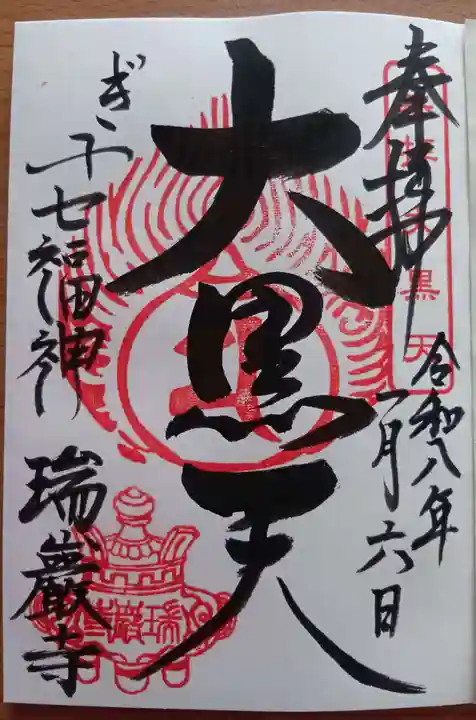 奉拝
令和八年
一月六日
大黒天
ぎふ七福神
瑞巌寺
黒天
瑞巖寺